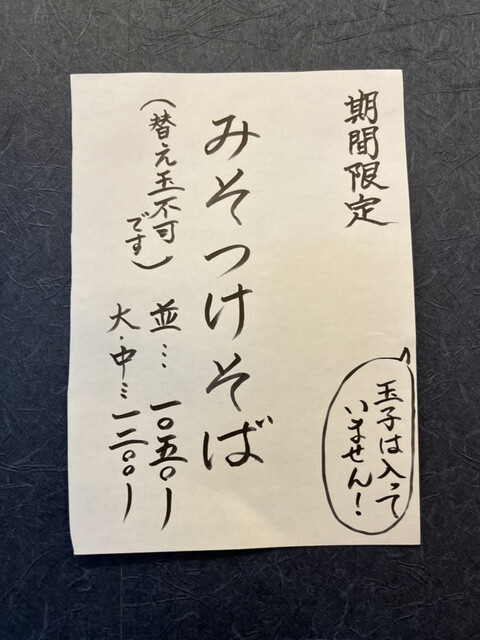 期間限定
玉子は入って
いません！
みそつけそば
（替え玉不可
です）
並…一〇五〇ー
大・中…一二〇〇ー